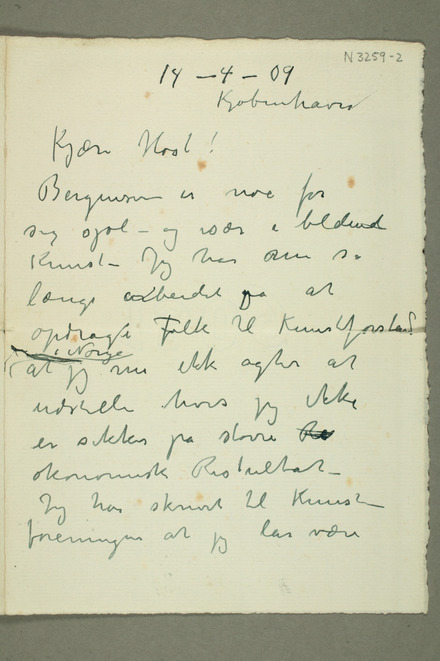 N 3259-2
14 – 4 – 09
Kjøbenhavn
Kjære Høst!
Bergensern er noe for
sig sjøl – og især i bldend
Kunst – Jeg har nu så
længe arbeidet på at
opdrage Folk til Kunstforstand
i Norge
at jeg nu ikk agter at
udstille hvis jeg ikke
er sikker på større
økonomisk Resultat –
Jeg har skrevt til Kunst–
foreningen at jeg lar være